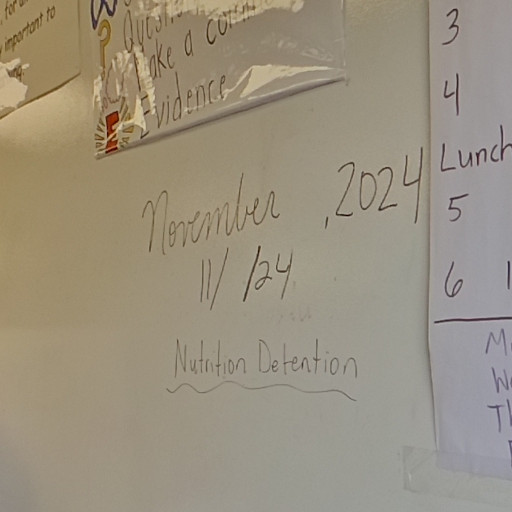 for
important to
Question
Make a
Evidence
November , 2024
11/ /24
Nutrition Detention
3
4
Lunch
5
6